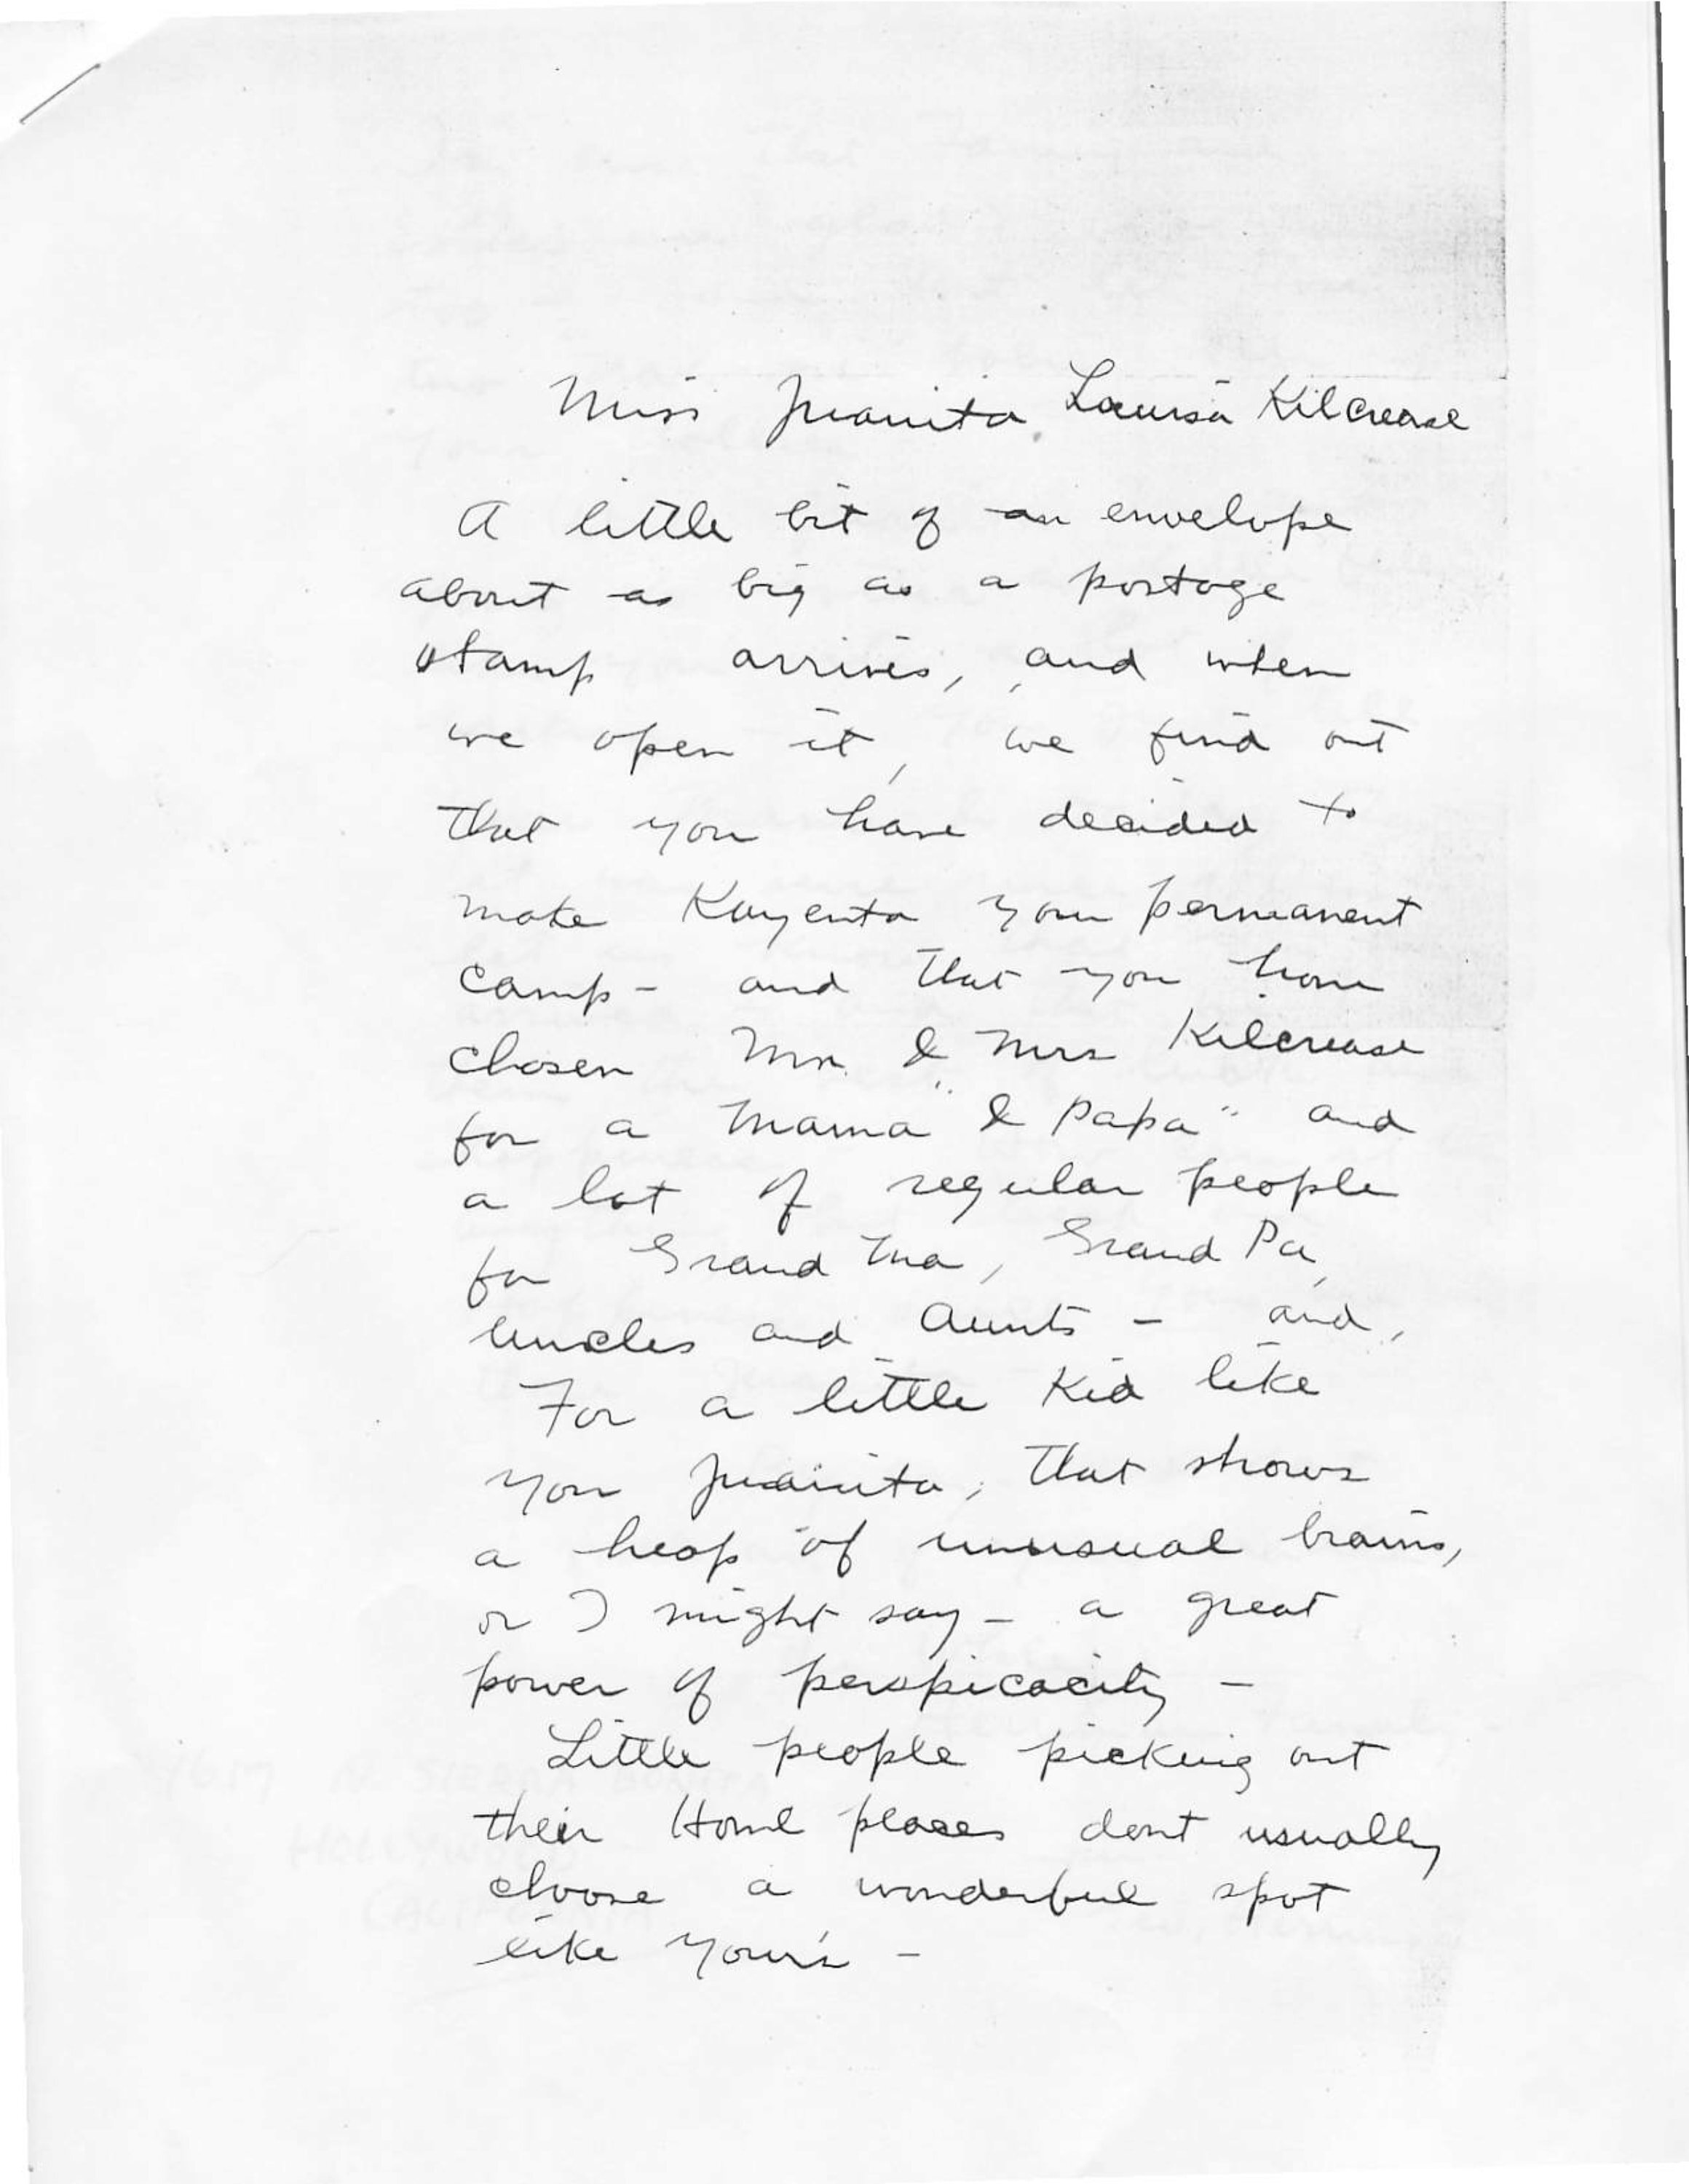 Miss Juanita Louisa Kilcrease
A little bit of an envelope
about as big as a postage
stamp arrives, and when
we open it, we find out
that you have decided to
make Kayenta your permanent
camp - and that you have
chosen Mr. & Mrs Kilcrease
for a "Mama & Papa" and
a lot of regular people
for Grand Ma, Grand Pa,
Uncles and Aunts - and,
For a little Kid like
you Juanita, that shows
a heap of unusual brains,
or I might say - a great
power of perspicacity -
Little people picking out
their Home places dont usually
choose a wonderful spot
like your's -
HOLLYWOOD
CALIFORNIA